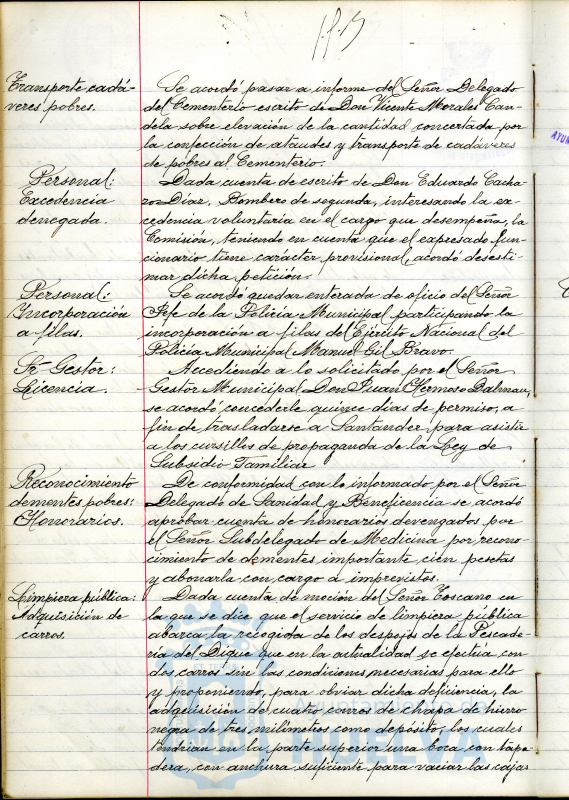 Transporte cadá-
veres pobres.
Se acordó pasar a informe del Señor Delegado
del Cementerio escrito de Don Vicente Morales Can-
dela sobre elevación de la cantidad concertada por
la confección de ataudes y transporte de cadáveres
de pobres al Cementerio.
Personal:
Excedencia
denegada.
Dada cuenta de escrito de Don Eduardo Cacha-
zo Diaz, Bombero de segunda, interesando la ex-
cedencia voluntaria en el cargo que desempeña, la
Comisión, teniendo en cuenta que el expresado fun-
cionario tiene carácter provisional, acordó desesti-
mar dicha petición.
Personal:
Yncorporación
a filas.
Se acordó quedar enterada de oficio del Señor
Jefe de la Policia Municipal participando la
incorporación a filas del Ejército Nacional del
Policia Municipal Manuel Gil Bravo.
Sr. Gestor:
Licencia.
Accediendo a lo solicitado por el Señor
Gestor Municipal Don Juan Hermoso Dalmau,
se acordó concederle quince dias de permiso, a
fin de trasladarse a Santander para asistir
a los cursillos de propaganda de la Ley de
Subsidio Familiar
Reconocimiento
dementes pobres:
Honorarios.
De conformidad con lo informado por el Señor
Delegado de Sanidad y Beneficencia se acordó
aprobar cuenta de honorarios devengados por
el Señor Subdelegado de Medicina por recono-
cimiento de dementes importante cien pesetas
y abonarla con cargo a imprevistos.
Limpieza pública:
Adquisición de
carros.
Dada cuenta de moción del Señor Toscano en
la que se dice que el servicio de limpieza pública
abarca la recogida de los despojos de la Pescade-
ría del Dique que en la actualidad se efectúa con
dos carros sin las condiciones necesarias para ello
y proponiendo, para obviar dicha deficiencia, la
adquisición de cuatro carros de chapa de hierro
negra de tres milímetros como depósito, los cuales
tendrían en la parte superior una boca con tapa-
dera, con anchura suficiente para vaciar las cajas
Ayuntamiento de
HUELVA
AYUN